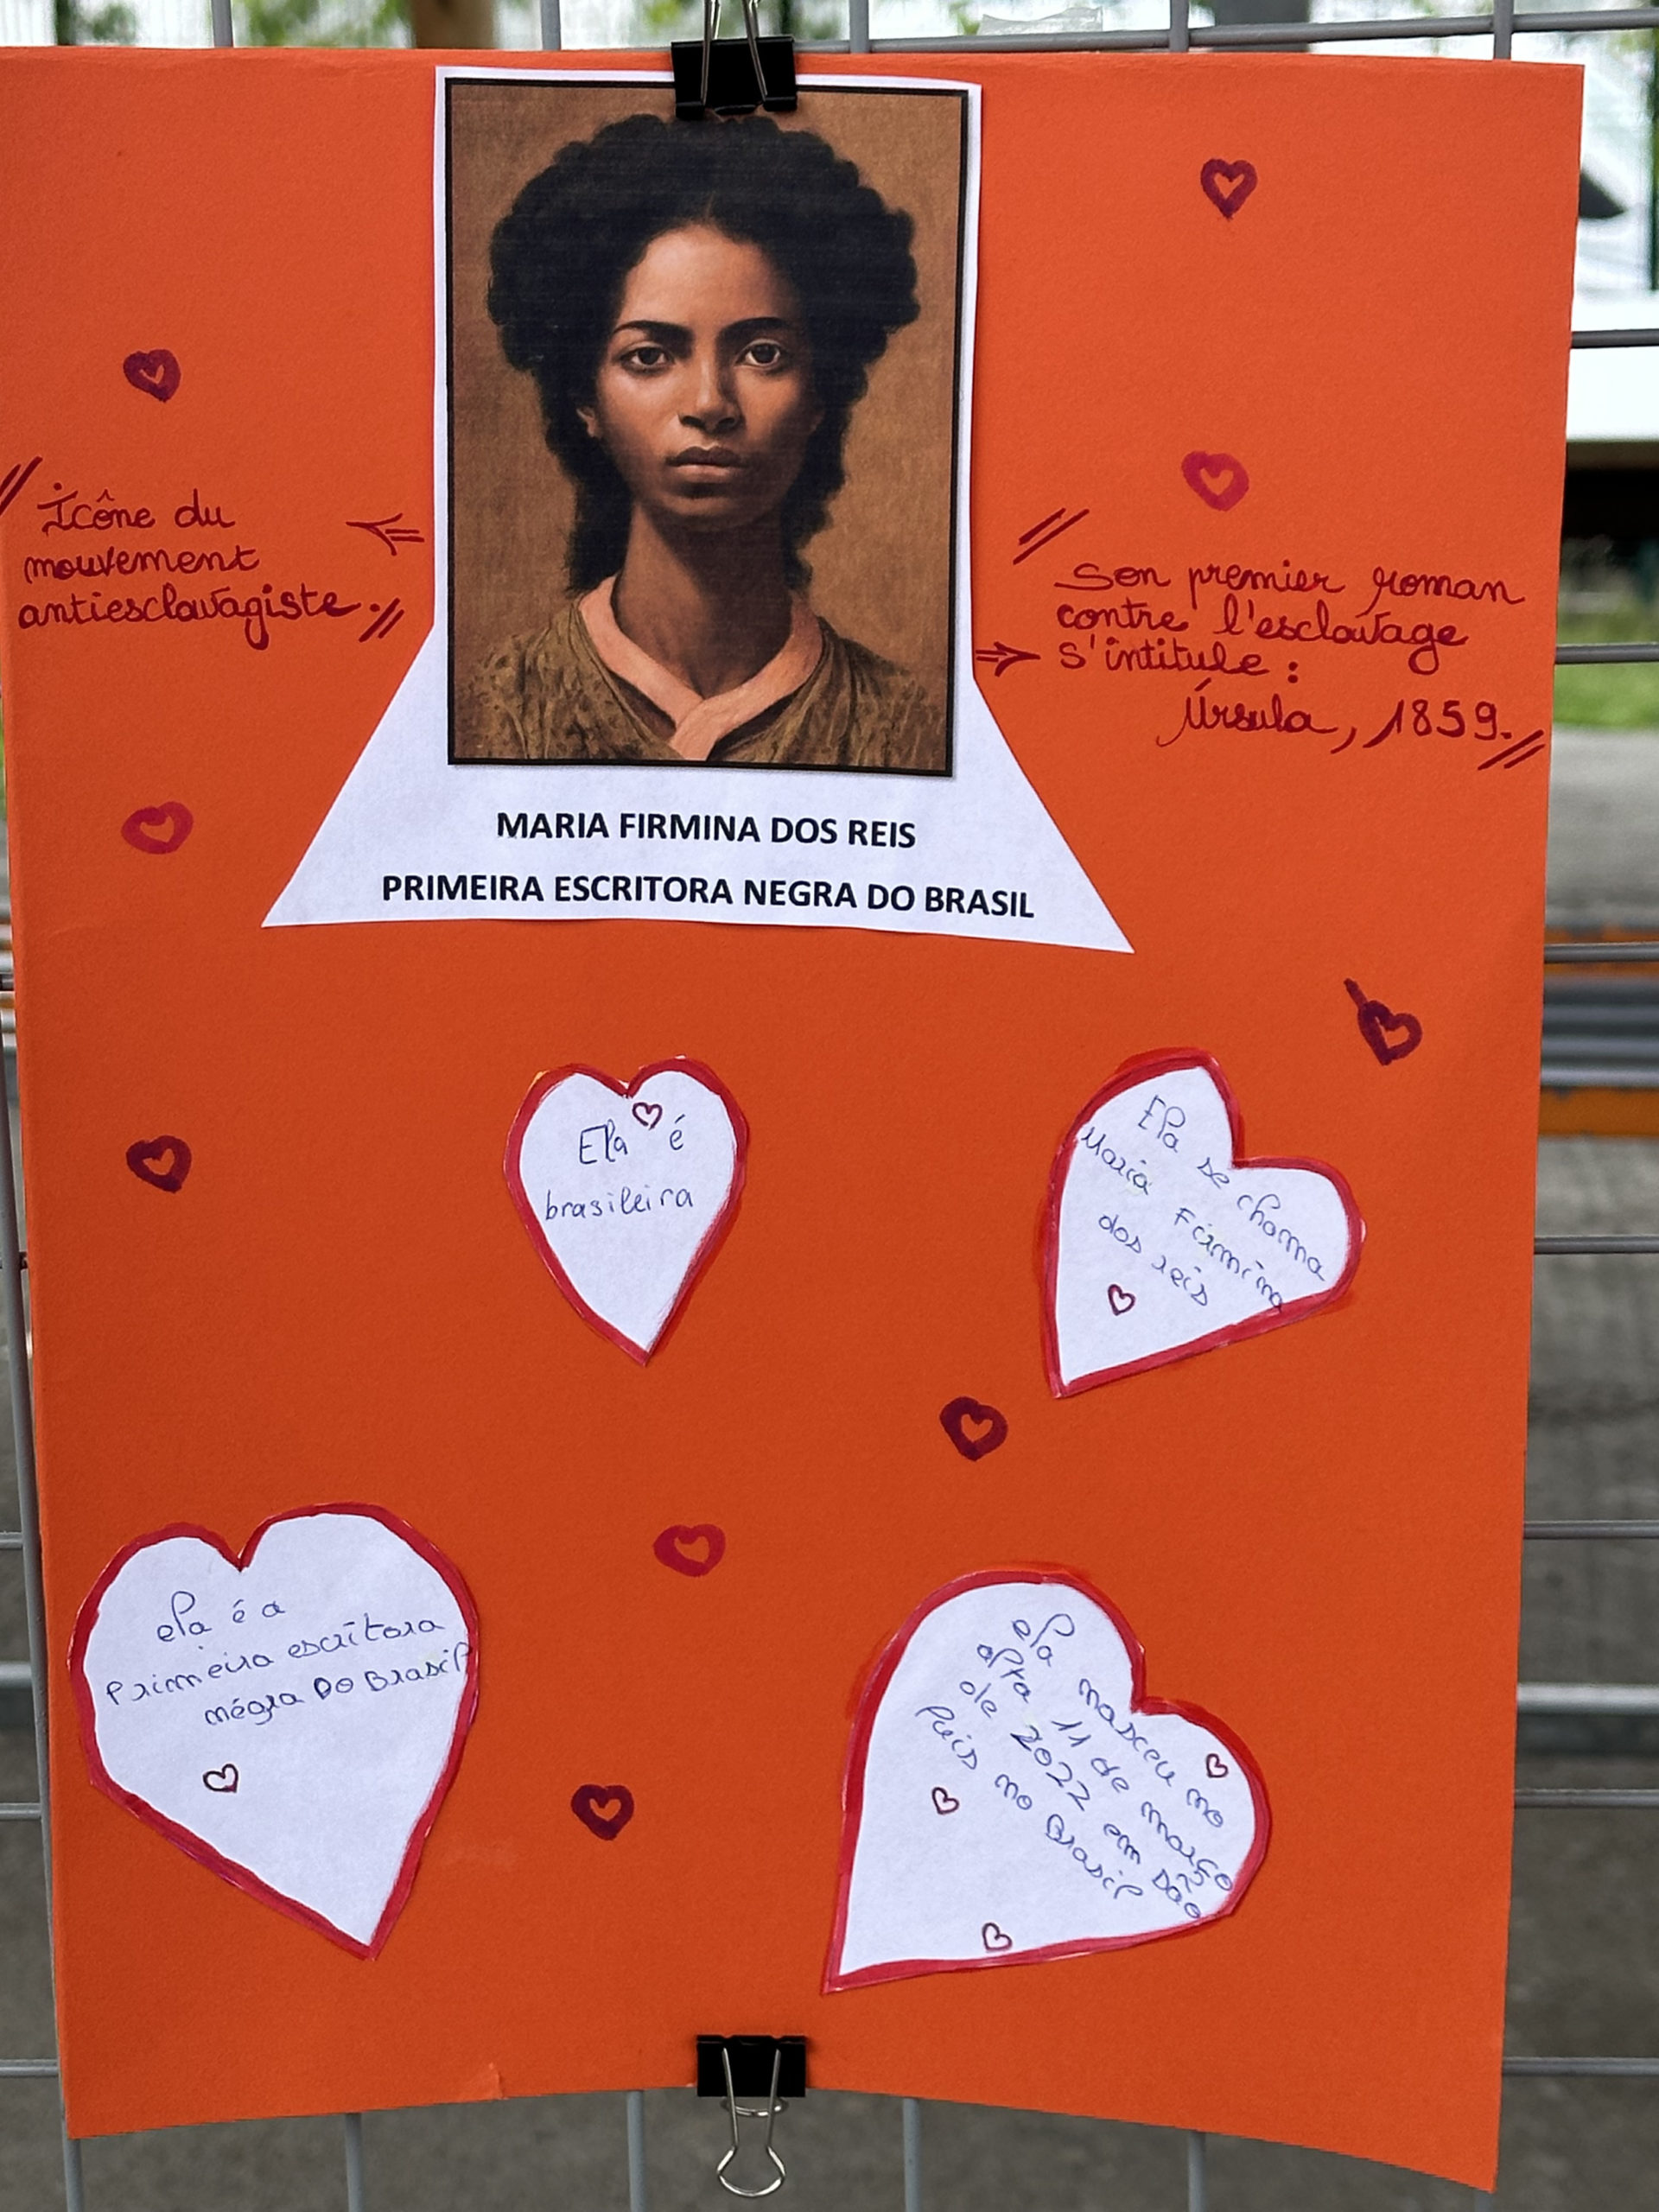 Icône du
mouvement
antiesclavagiste.
Son premier roman
contre l'esclavage
s'intitule :
Úrsula, 1859.
MARIA FIRMINA DOS REIS
PRIMEIRA ESCRITORA NEGRA DO BRASIL
Ela é
brasileira
Ela se chama
Maria Firmina
dos reis
ela é a
Primeira escritora
négra DO Brasil
ela nasceu no
dia 11 de março
de 2022 em São
Luis no Brasil